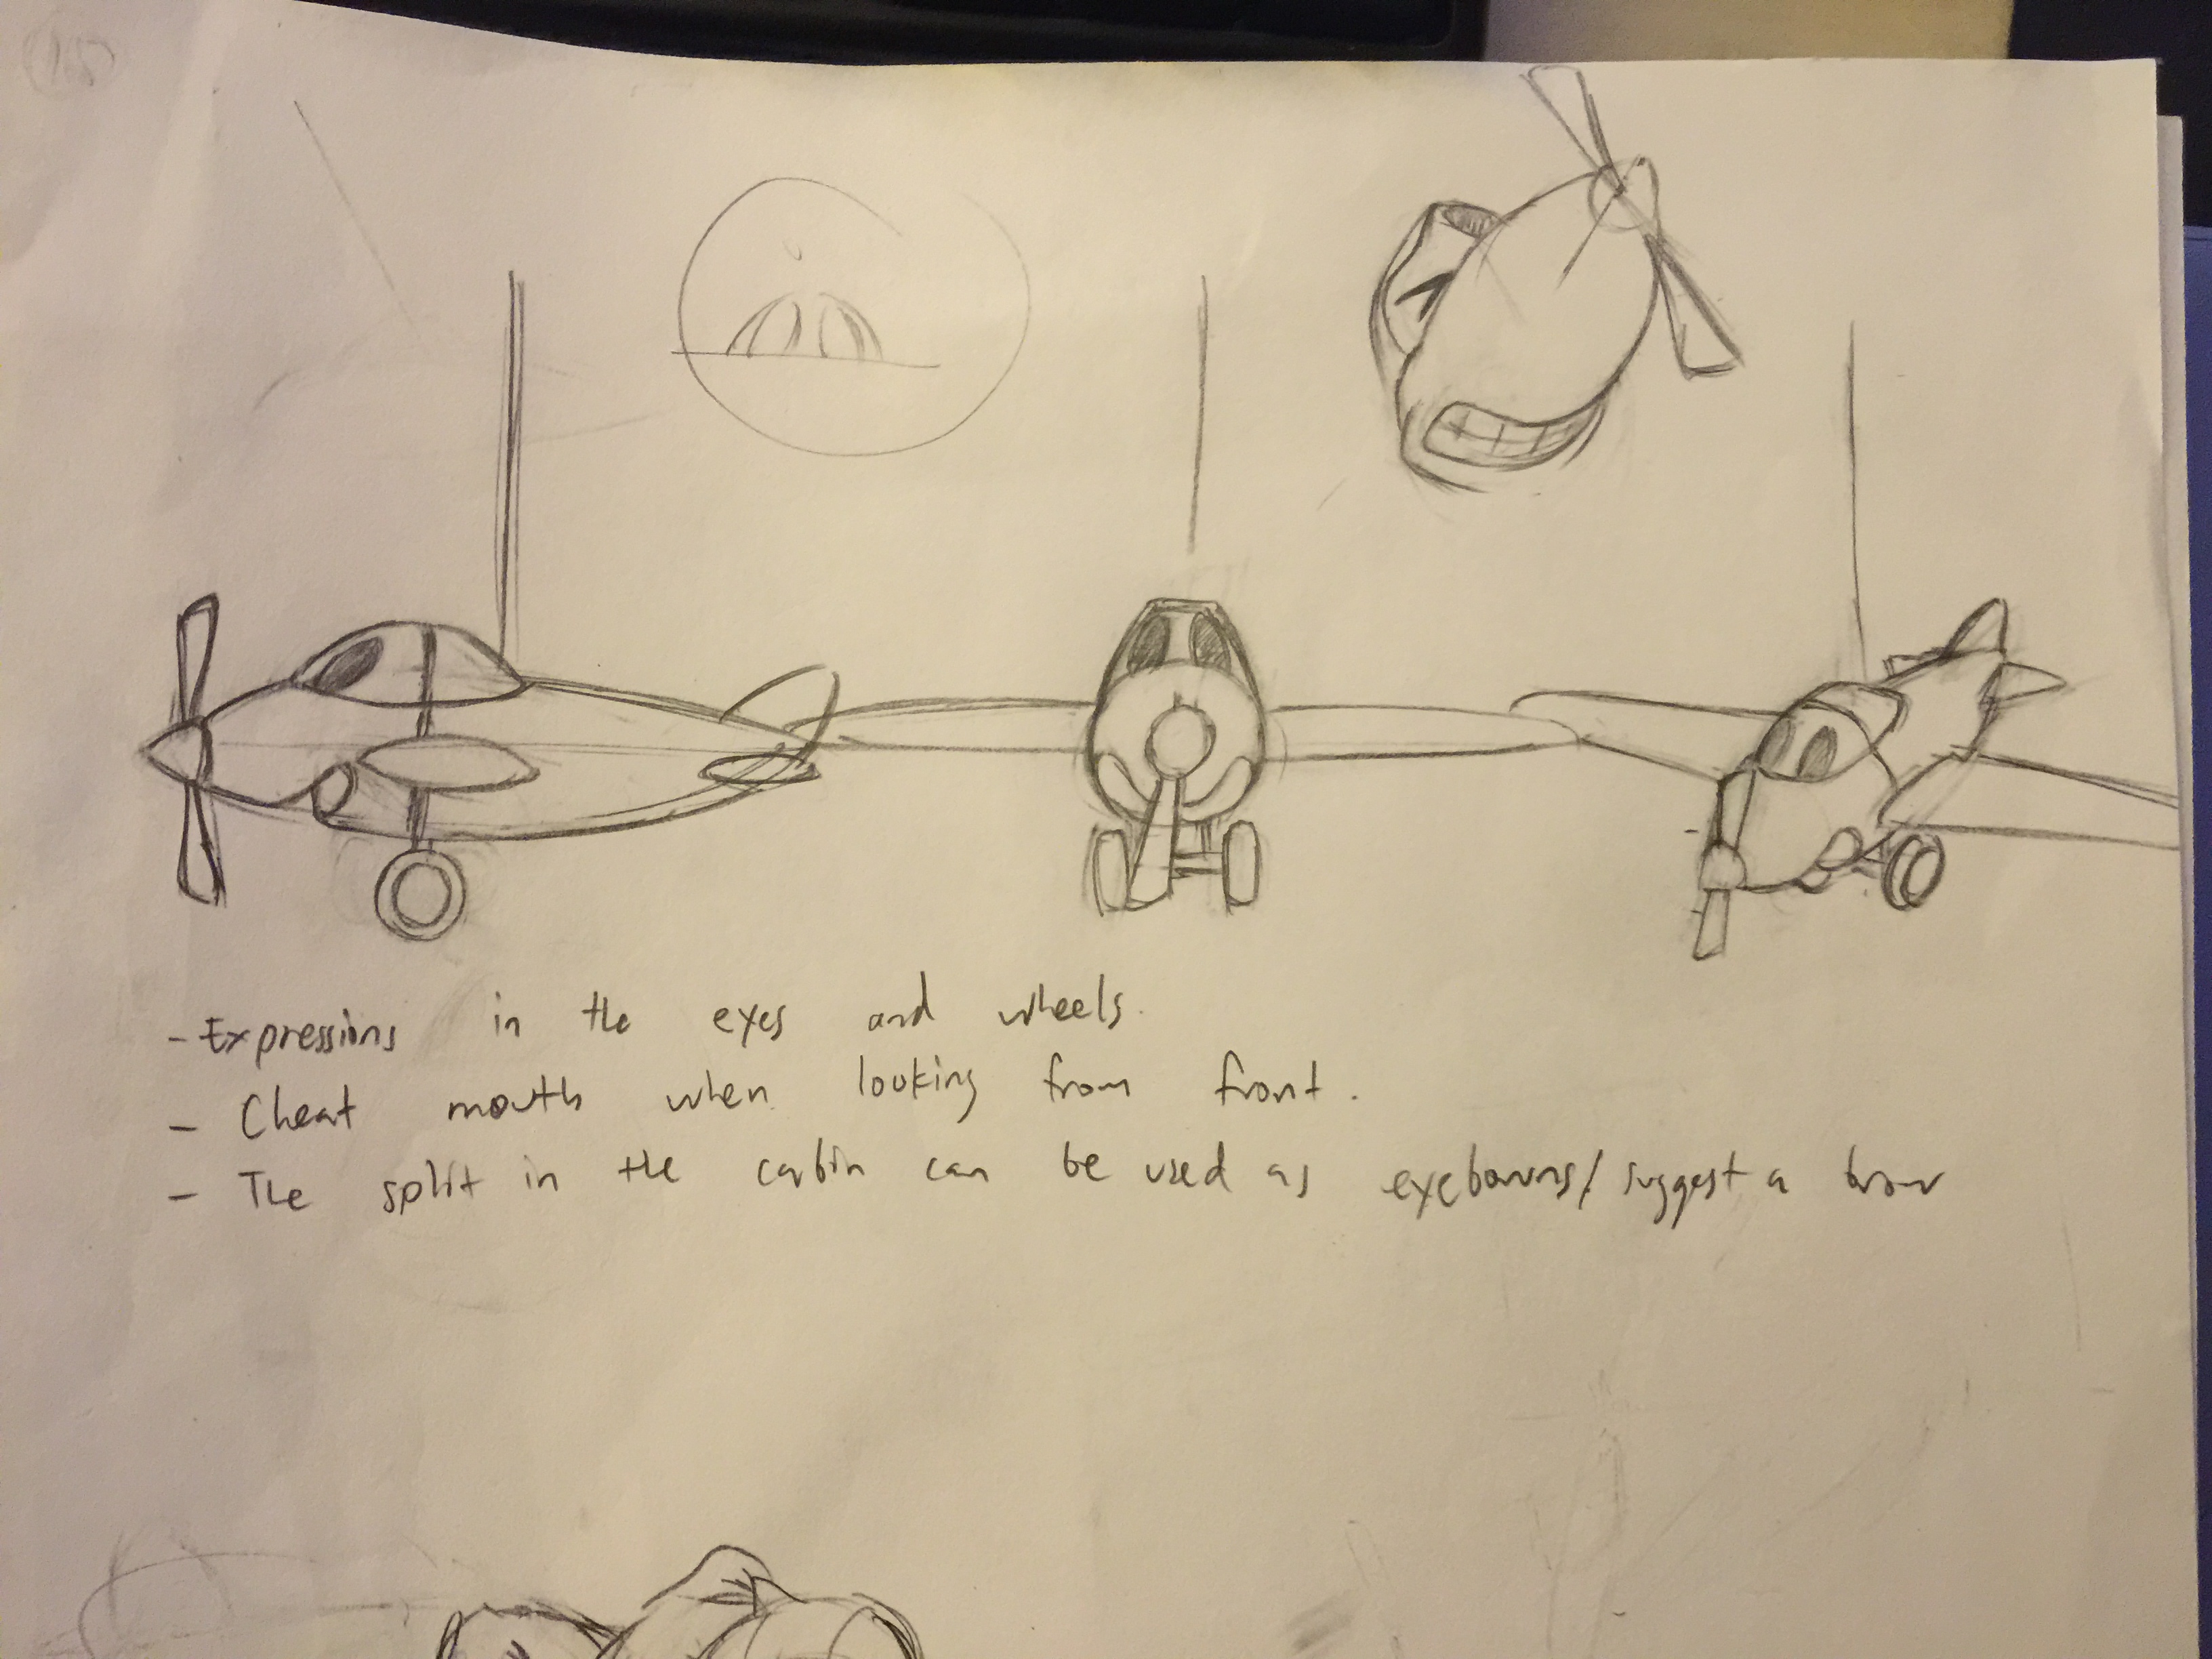 - Expressions in the eyes and wheels.
- Cheat mouth when looking from front.
- The split in the cabin can be used as eyebowns/suggest a brow